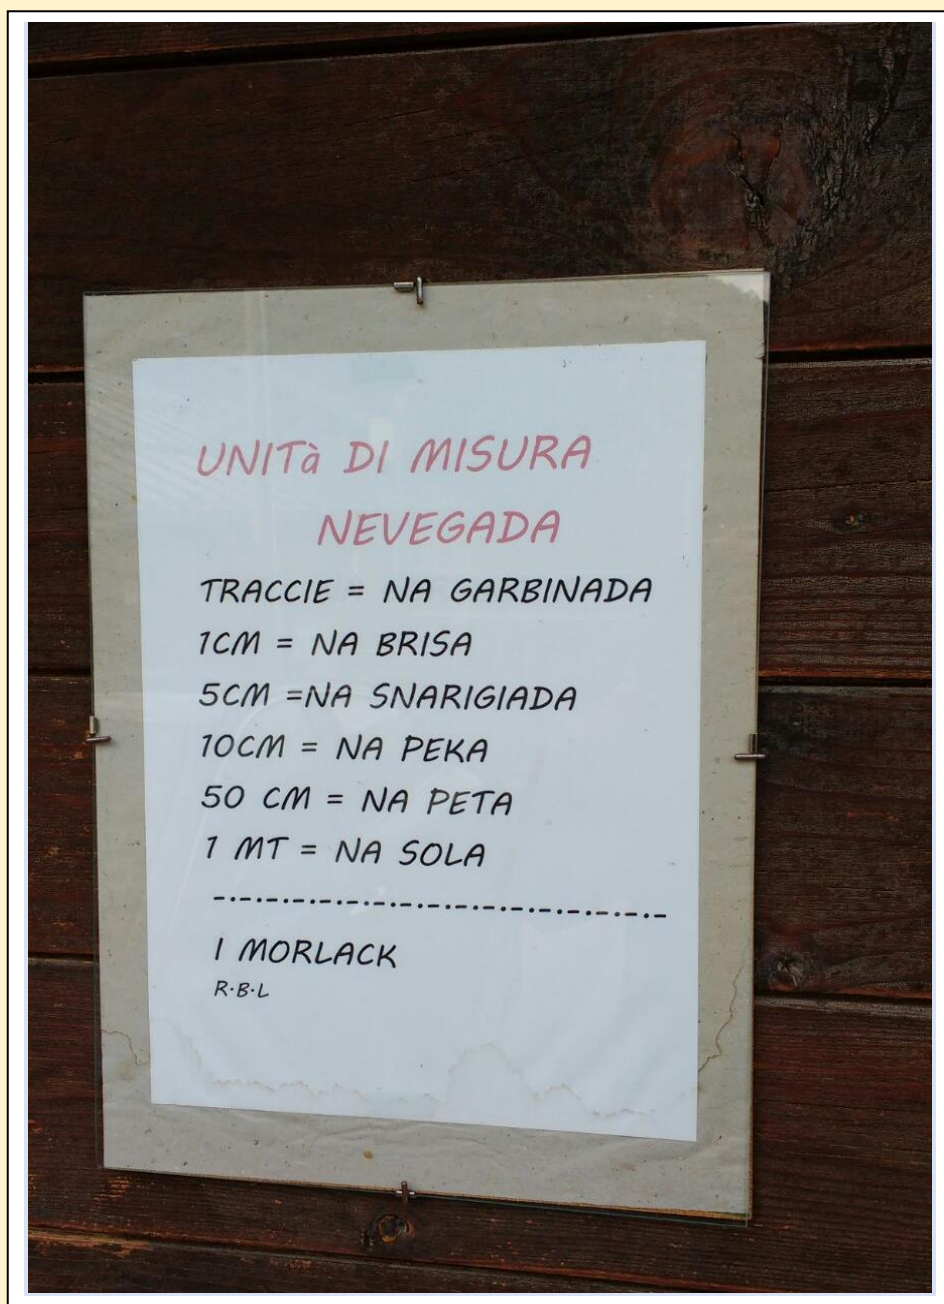 UNITà DI MISURA
NEVEGADA
TRACCIE = NA GARBINADA
1CM = NA BRISA
5CM =NA SNARIGIADA
10CM = NA PEKA
50 CM = NA PETA
1 MT = NA SOLA
-·-·-·-·-·-·-·-·-·-·-·-·-·-·-·-·-
I MORLACK
R·B·L